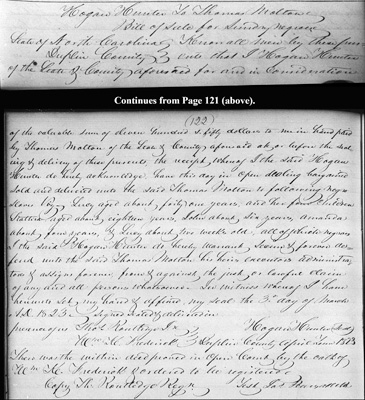 Hogan Hunter To Thomas Molton
Bill of Sale for Sundry negroes
State of North Carolina Know all men by these pres-
Duplin County ents that I Hogan Hunter
of the State & County aforesaid for and in Consideration
Continues from Page 121 (above).
(122)
of the valuable sum of Eleven hundred & fifty dollars to me in hand paid
by Thomas Molton of the State & County aforesaid at or before the seal-
ing & delivery of these presents, the receipt whereof I the said Hogan
Hunter do hereby acknowledge have this day in open dealing bargained
sold and delivered unto the said Thomas Molton the following negro
slaves Viz, Lucy aged about forty one years, and her four children
aged about eighteen years, John about six years, Amanda
about four years, & Lucy about two weeks old, all of which negroes
I the said Hogan Hunter do hereby Warrant, Secure & forever de-
fend unto the said Thomas Molton his heirs executors administra-
tors & assigns forever from & against the just or lawful claim
of any and all persons whatsoever. In witness whereof I have
hereunto set my hand & affixed my seal the 3d day of March
A.D. 1823. Signed sealed & delivered in
presence of Thos Routledge Jr. Hogan Hunter (seal)
Wm K. Frederick } Duplin County April term 1823
Then was the within deed proved in Open Court by the oath of
Wm K. Frederick & ordered to be registered.
Copy Th. Routledge Regr. Test Jas Pearsall